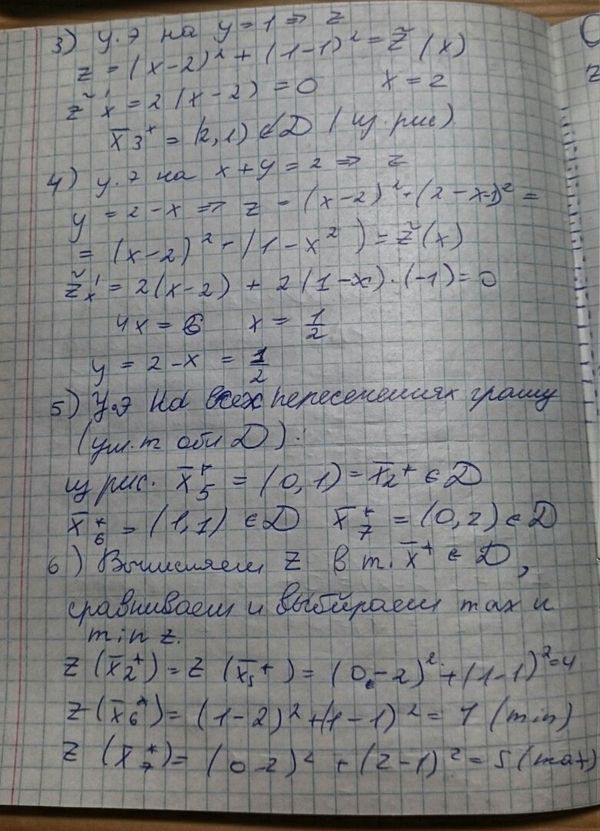 3) у.э на y=1 ⇒ z
z = (x-2)² + (1-1)² = z̃(x)
z̃'x = 2(x-2) = 0 x = 2
x̄3* = (2,1) ∉ D (из рис)
4) у.э на x+y=2 ⇒ z
y = 2-x ⇒ z = (x-2)² + (2-x-1)² =
= (x-2)² + (1-x²) = z̃(x)
z̃x' = 2(x-2) + 2(1-x)·(-1) = 0
4x = 6 x = 1/2
y = 2-x = 1/2
5) У.э на всех пересечениях границ
(ул.т обл D).
из рис. x̄5* = (0,1) = x̄2* ∈ D
x̄6* = (1,1) ∈ D x̄7* = (0,2) ∈ D
6) Вычисляем z в т. x̄* ∈ D,
сравниваем и выбираем max и
min z.
z(x̄2*) = z(x̄5*) = (0-2)² + (1-1)² = 4
z(x̄6*) = (1-2)² + (1-1)² = 1 (min)
z(x̄7*) = (0-2)² + (2-1)² = 5 (max)